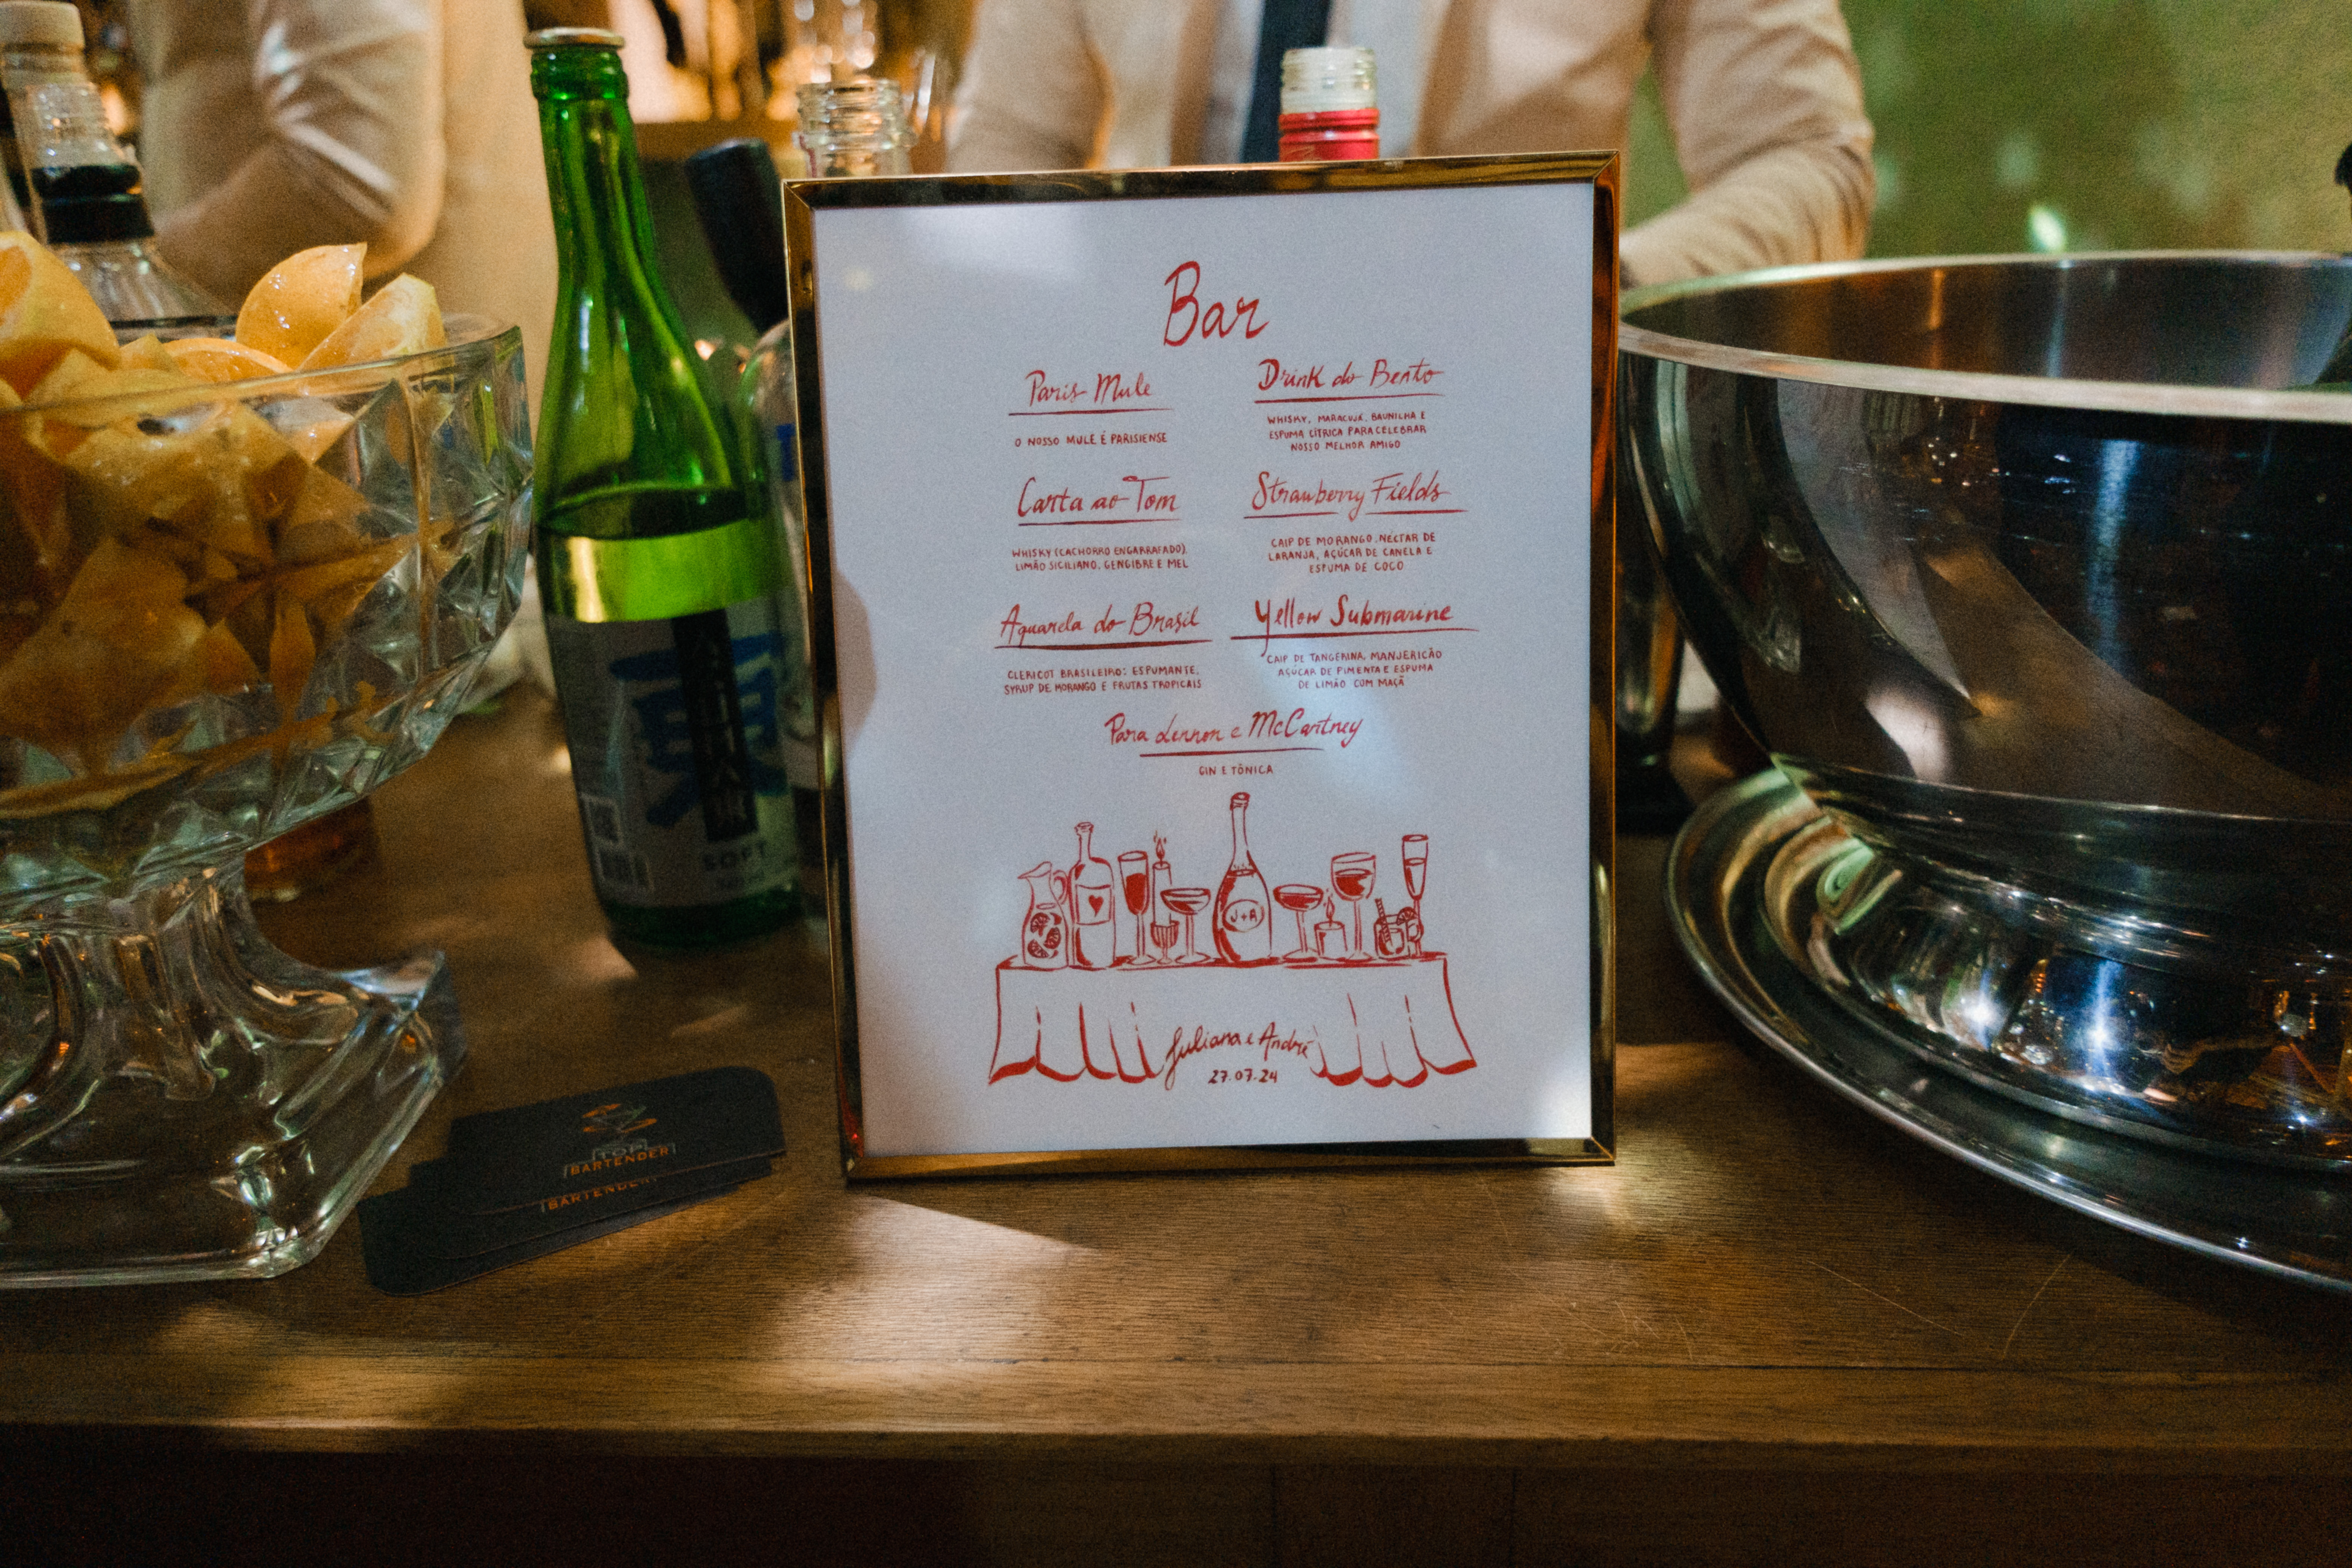 Bar
Paris Mule
O NOSSO MULE É PARISIENSE
Carta ao Tom
WHISKY (CACHORRO ENGARRAFADO),
LIMÃO SICILIANO, GENGIBRE E MEL
Aquarela do Brasil
CLERICOT BRASILEIRO: ESPUMANTE,
SYRUP DE MORANGO E FRUTAS TROPICAIS
Drink do Bento
WHISKY, MARACUJÁ, BAUNILHA E
ESPUMA CÍTRICA PARA CELEBRAR
NOSSO MELHOR AMIGO
Strawberry Fields
CAIP DE MORANGO, NÉCTAR DE
LARANJA, AÇÚCAR DE CANELA E
ESPUMA DE COCO
Yellow Submarine
CAIP DE TANGERINA, MANJERICÃO
AÇÚCAR DE PIMENTA E ESPUMA
DE LIMÃO COM MAÇÃ
Para Lennon e McCartney
GIN E TÔNICA
J+A
Juliana e André
27.07.24
SOFT
TOP
BARTENDER
BARTENDER